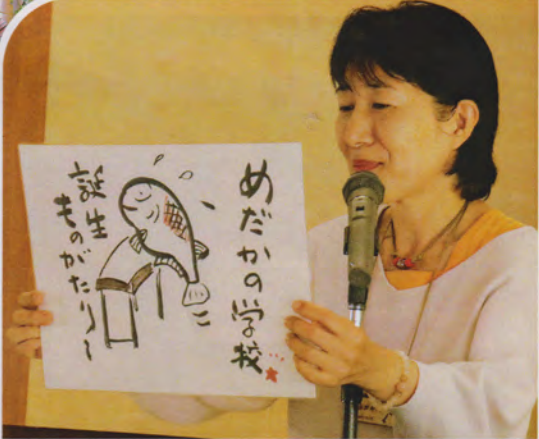 めだかの学校
誕生
ものがたり〜